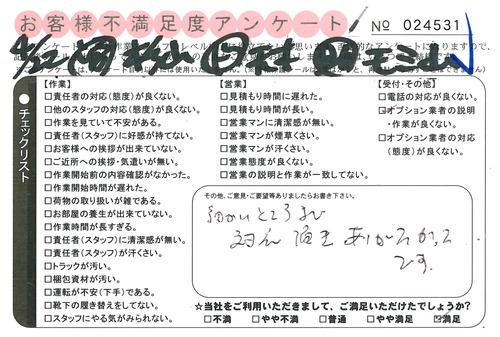 お客様不満足度アンケート
No 024531
4/22
チェックリスト
【作業】
□責任者の対応(態度)が良くない。
□他のスタッフの対応(態度)が良くない。
□作業を見ていて不安がある。
□責任者(スタッフ)に好感が持てない。
□お客様への挨拶が出来ていない。
□ご近所への挨拶・気遣いが無い。
□作業開始前の内容確認がなかった。
□作業開始時間が遅れた。
□荷物の取り扱いが雑である。
□お部屋の養生が出来ていない。
□作業時間が長すぎる。
□責任者(スタッフ)に清潔感が無い。
□責任者(スタッフ)が汗くさい。
□トラックが汚い。
□梱包資材が汚い。
□運転が安車(下手)である。
□靴下の履き替えをしてない。
□スタッフにやる気がみられない。
【営業】
□見積もり時間に遅れた。
□見積もり時間が長い。
□営業マンに清潔感が無い。
□営業マンが煙草くさい。
□営業マンが汗くさい。
□営業態度が良くない。
□営業の説明と作業が一致してない。
【受付・その他】
□電話の対応が良くない。
□オプション業者の説明
・作業が良くない。
□オプション業者の対応
(態度)が良くない。
その他、ご意見・ご要望等ありましたらお書き下さい。
細かいところまで
対応頂き ありがたかった
です。
☆当社をご利用いただきまして、ご満足いただけたでしょうか?
□不満 □やや不満 □普通 □やや満足 ☑満足